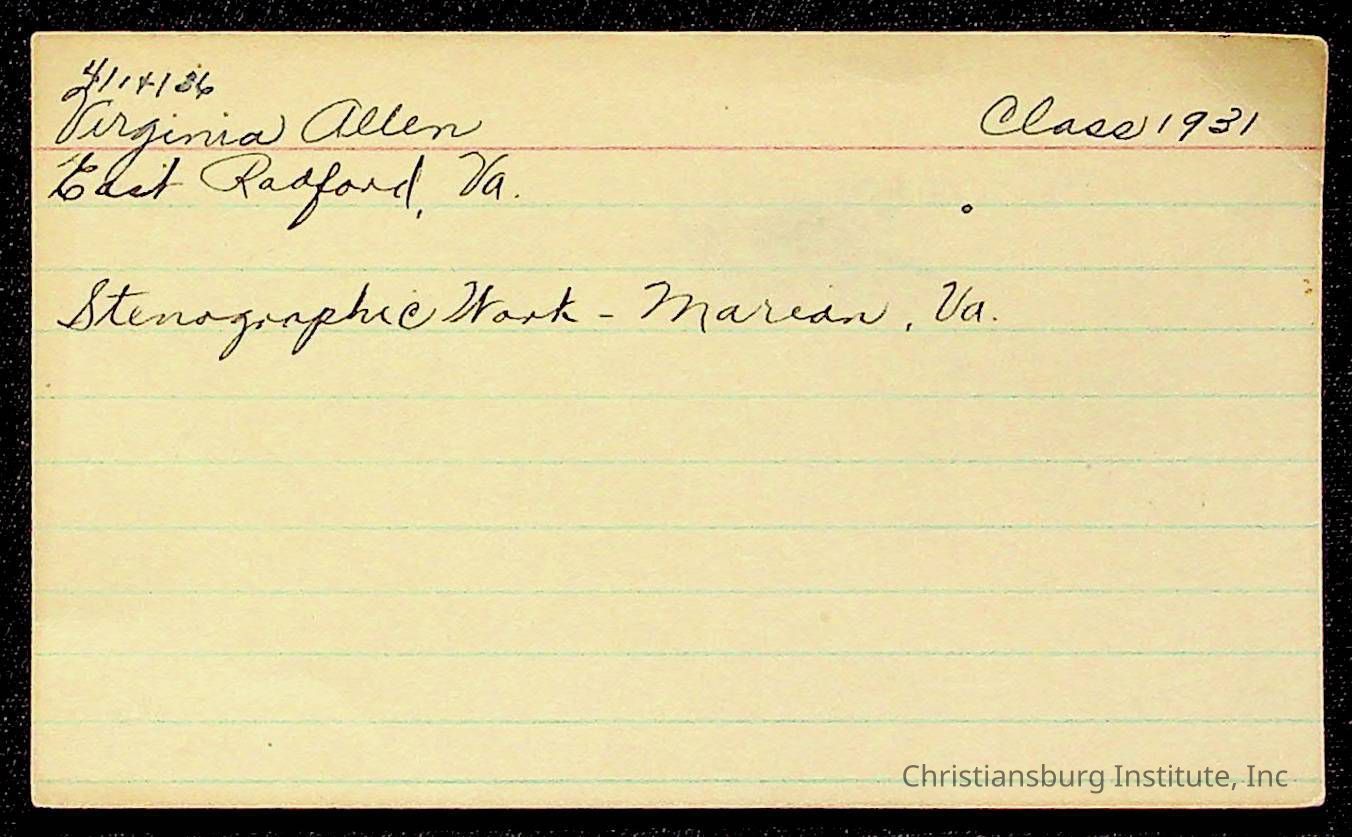 4/14/36
Virginia Allen Class 1931
East Radford, Va.
Stenographic Work - Marion, Va.
Christiansburg Institute, Inc